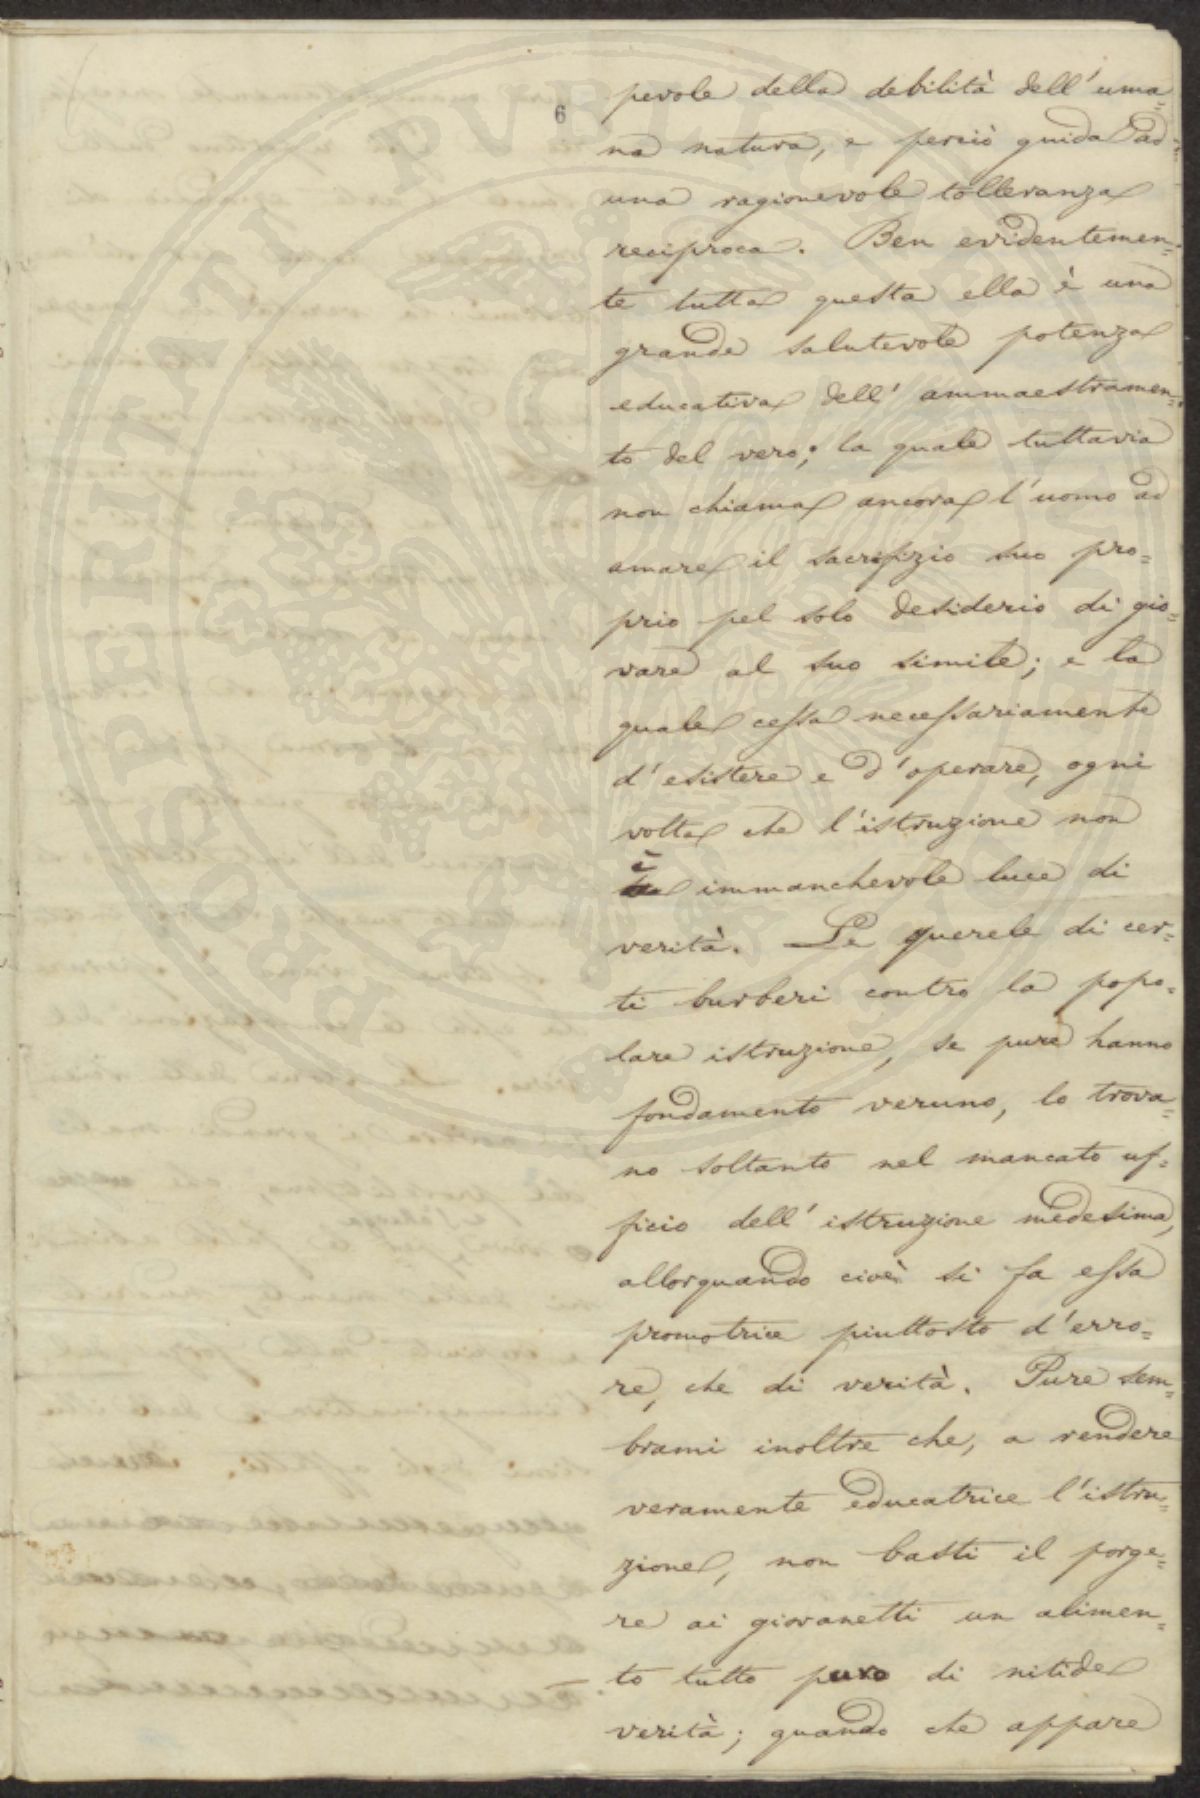 6
pevole della debilità dell'uma=
na natura, e perciò guida ad
una ragionevole tolleranza
reciproca. Ben evidentemen=
te tutta questa ella è una
grande salutevole potenza
educativa dell'ammaestramen=
to del vero; la quale tuttavia
non chiama ancora l'uomo ad
amare il sacrifizio suo pro=
prio pel solo desiderio di gio=
vare al suo simile; e la
quale cessa necessariamente
d'esistere e d'operare, ogni
volta che l'istruzione non
è immanchevole luce di
verità. Le querele di cer=
ti burberi contro la popo=
lare istruzione, se pure hanno
fondamento veruno, lo trova=
no soltanto nel mancato uf=
ficio dell'istruzione medesima,
allorquando cioè si fa essa
promotrice piuttosto d'erro=
re, che di verità. Pure sem=
brami inoltre che, a rendere
veramente educatrice l'istru=
zione, non basti il porge=
re ai giovanetti un alimen=
to tutto puro di nitide
verità; quando che appare
PROSPERITATI PVBLICAE